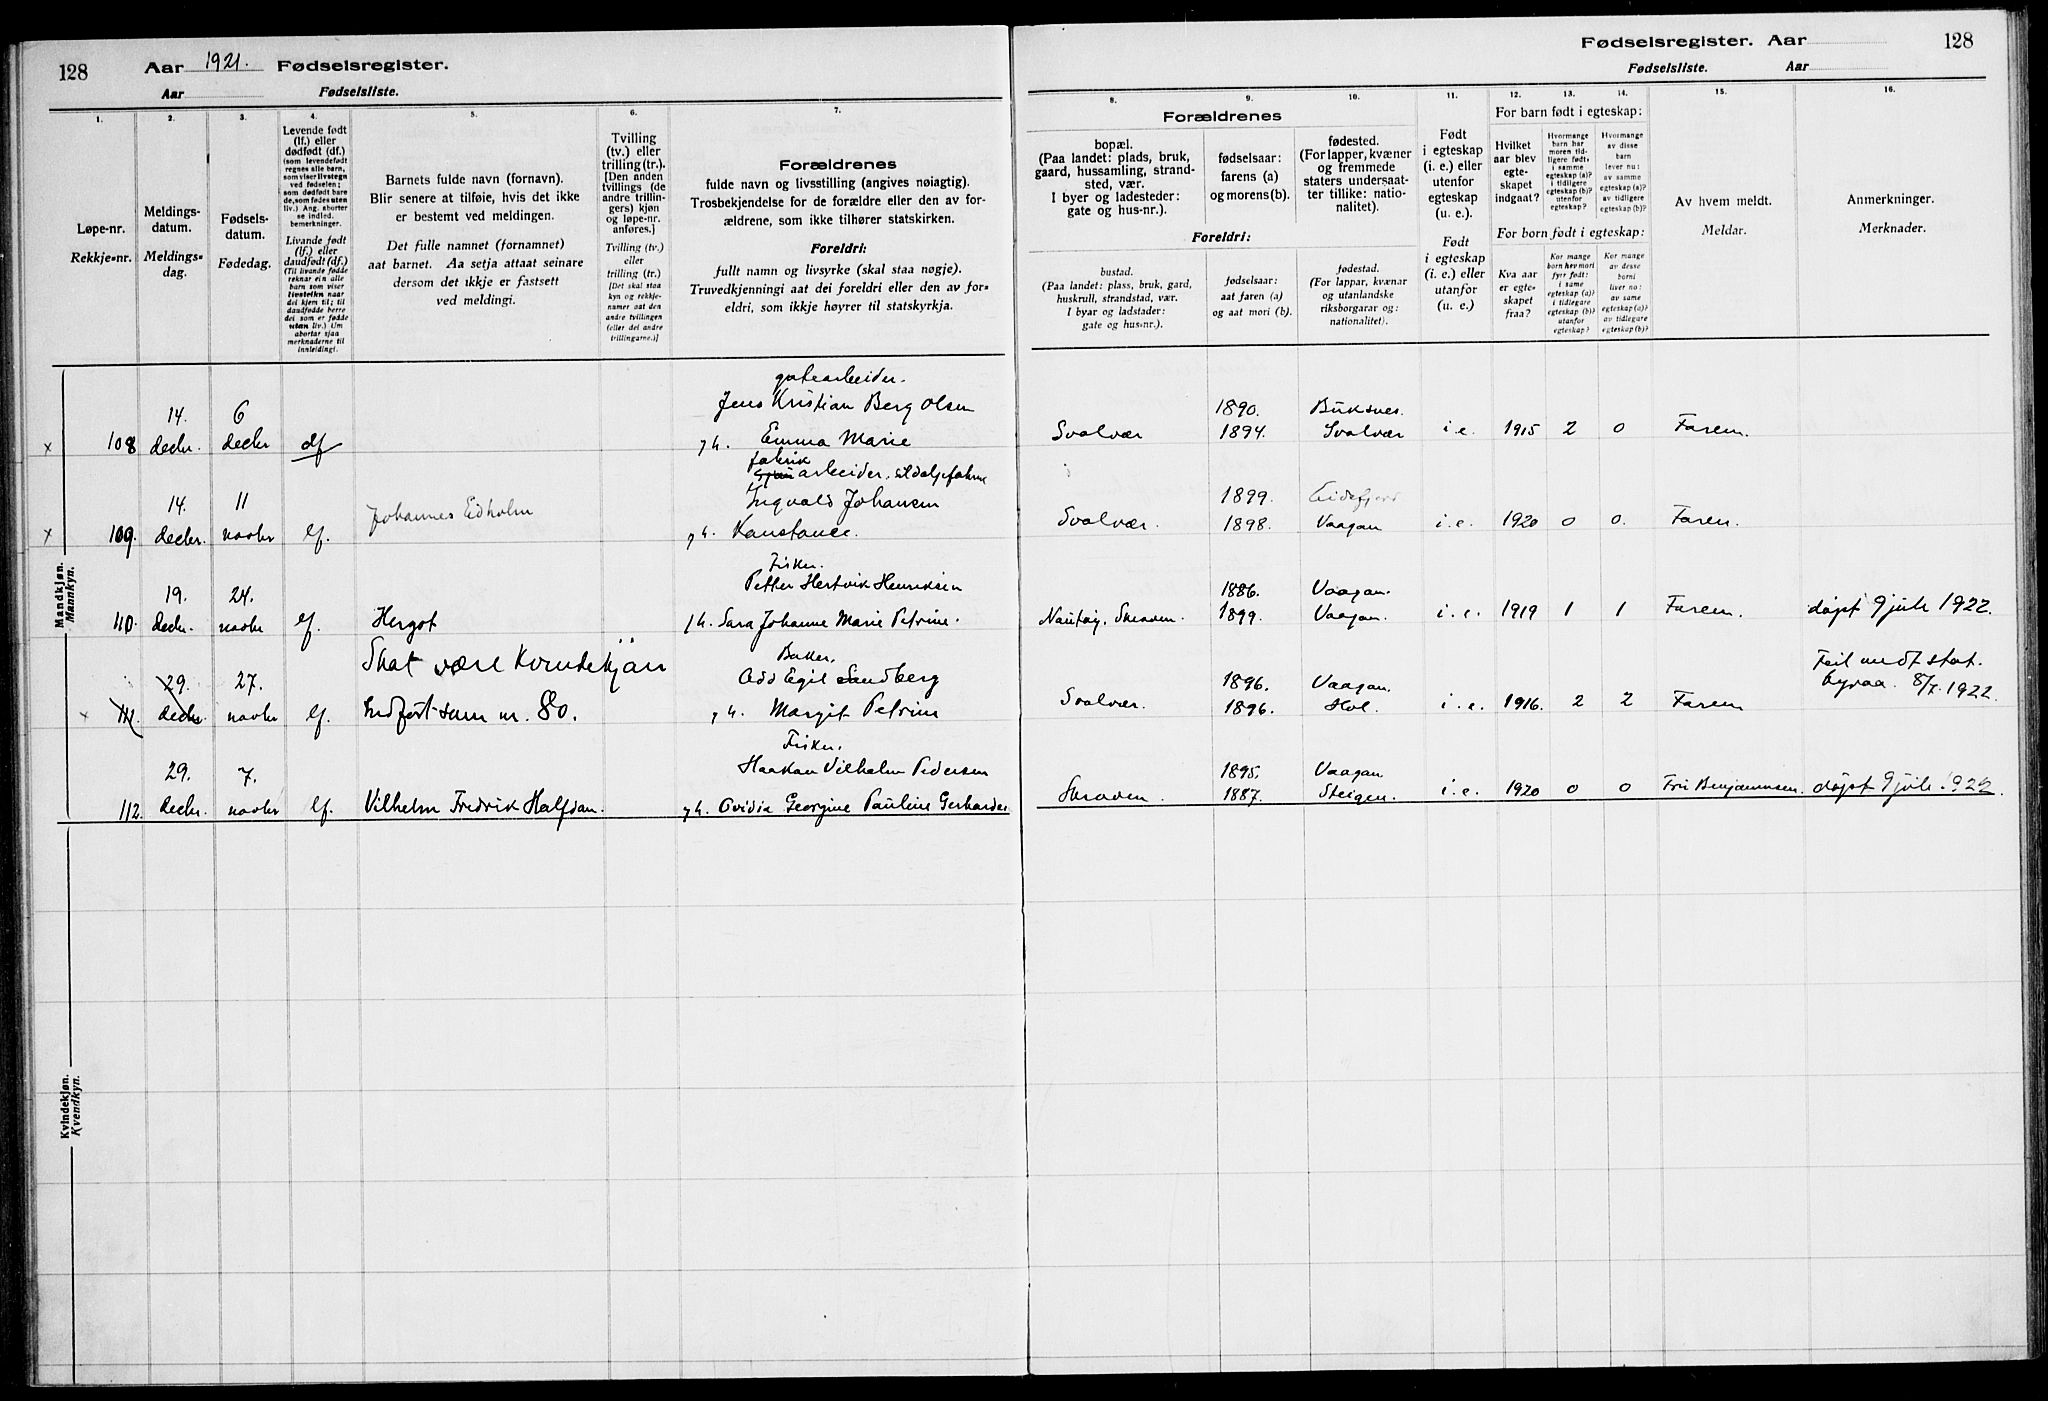 128
Aar 1921. Fødselsregister.
Aar Fødselsliste.
Fødselsregister. Aar
128
Fødselsliste. Aar
1.
2.
3.
4.
5.
6.
7.
8.
9.
10.
11.
12.
13.
14.
15.
16.
Løpe-nr.
Rekkje-nr.
Meldings-
datum.
Meldings-
dag.
Fødsels-
datum.
Fødedag.
Levende født
(lf.) eller
dødfødt (df.)
(som levendefødt
regnes alle barn,
som viser livstegn
ved fødselen;
som dødfødt bare
de, som fødes uten
liv.) Ang. aborter
se indled.
bemerkninger.
Livande født
(lf.) eller
daudfødt (df.)
(Til livande fødde
reknar ein alle
barn som viser
livsteikn naar
dei kjem til; til
daudfødde berre
dei som er fødde
utan liv.) Um
abortar sjaa
merknaderne til
innleidingi.
Barnets fulde navn (fornavn).
Blir senere at tilføie, hvis det ikke
er bestemt ved meldingen.
Det fulle namnet (fornamnet)
aat barnet. Aa setja attaat seinare
dersom det ikkje er fastsett
ved meldingi.
Tvilling
(tv.) eller
trilling (tr.).
[Den anden
tvillings (de
andre trillin-
gers) kjøn
og løpe-nr.
anføres.]
Tvilling (tv.)
eller
trilling (tr.)
[Det skal staa
kyn og rekkje-
numer aat den
andre tvillingen
(eller dei andre
trillingarne.)]
Forældrenes
fulde navn og livsstilling (angives nøiagtig).
Trosbekjendelse for de forældre eller den av for-
ældrene, som ikke tilhører statskirken.
Foreldri:
fullt namn og livsyrke (skal staa nøgje).
Truvedkjenningi aat dei foreldri eller den av for-
eldri, som ikkje høyrer til statskyrkja.
Forældrenes
bopæl.
(Paa landet: plads, bruk,
gaard, hussamling, strand-
sted, vær.
I byer og ladesteder:
gate og hus-nr.).
fødselsaar:
farens (a)
og morens (b).
fødested.
(For lapper, kvæner
og fremmede
staters undersaat-
ter tillike: natio-
nalitet).
Foreldri:
bustad.
(Paa landet: plass, bruk, gard,
huskrull, strandstad, vær.
I byar og ladstader:
gate og hus-nr.).
fødselsaar:
aat faren (a)
og aat mori (b).
fødestad.
(For lappar, kvænar
og utanlandske
riksborgarar og:
nationalitet).
Født
i egteskap
(i. e.) eller
utenfor
egteskap
(u. e.).
Født
i egteskap
(i. e.) eller
utanfor
(u. e.).
For barn født i egteskap:
Hvilket
aar blev
egte-
skapet
indgaat?
Hvormange
barn har
moren tid-
ligere født,
i samme
egteskap (a)?
i tidligere
egteskap (b)?
utenfor
egteskap?
Hvormange
av disse
barn
lever nu:
av samme
egteskap (a)?
av tidligere
egteskap (b)?
For born født i egteskap:
Kva aar
er egte-
skapet
fraa?
Kor mange
born hev mori
fyrr født:
i same
egteskap (a)?
i tidlegare
egteskap (b)?
utanfor
egteskap?
Kor mange
av desse
borni
liver no:
av same
egteskap (a)?
av tidlegare
egteskap (b)?
Av hvem meldt.
Meldar.
Anmerkninger.
Merknader.
Mandkjøn.
Mannkyn.
gatearbeider.
14. 6 Jens Kristian Berg Olsen 1890. Buksnes.
x 108 decbr. decbr df h. Emma Marie Svolvær 1894. Svolvær i.e. 1915 2 0 Faren.
fabrik
arbeider, sildoljefabrik
14. 11 Johannes Eidholm Ingvald Johansen 1899. Eidsfjord
x 109. decbr. novbr lf. h. Konstance. Svolvær. 1898. Vaagan i.e. 1920 0 0. Faren.
Fisker.
19. 24. Petter Hertvik Henriksen 1886. Vaagan.
110. decbr. novbr lf. Hergot h. Sara Johanne Marie Petrine. Skroven. 1899. Vaagan. i.e. 1919 1 1 Faren. døpt 9 juli 1922.
Skal være Kvindekjön Baker. Feil meldt stat.
29. 27. Odd Egil Sandberg 1896. Vaagan. byraa. 8/7. 1922.
x 111. decbr. novbr lf. Indført som nr. 80. h. Margit Petrine Svolvær. 1896. Hol. i.e. 1916. 2 2 Faren
Fisker.
29. 7. Haakon Vilhelm Pedersen 1895. Vaagan
112. decbr. novbr lf. Vilhelm Fredrik Halfdan. h. Ovidia Georgine Pauline Gerharda Skroven. 1887. Steigen. i.e. 1920 0 0 Fru Benjaminsen. døpt 9 juli 1922.
Kvindekjøn.
Kvendkyn.